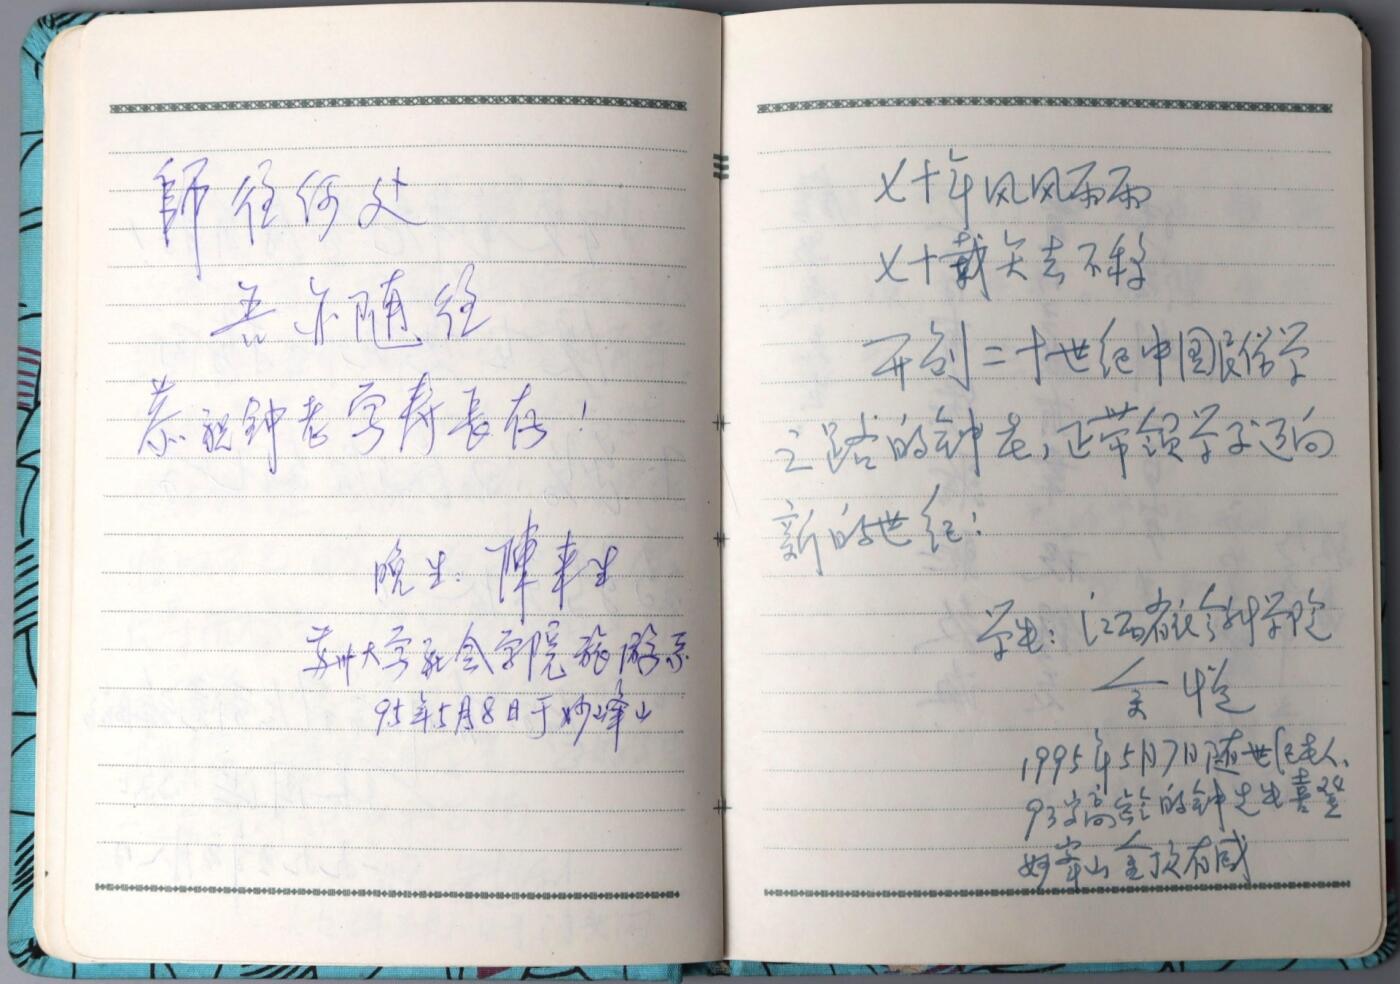 師往何处
吾亦随往
恭祝钟老学寿長存！
晚生：陳来生
苏州大学社会学院旅游系
95年5月8日于妙峰山
七十年风风雨雨
七十载矢志不移
开创二十世纪中国民俗学
之路的钟老，正带领学子迈向
新的世纪！
学生：江西省社会科学院
余悦
1995年5月7日随世纪老人、
93岁高龄的钟先生喜登
妙峯山金顶有感